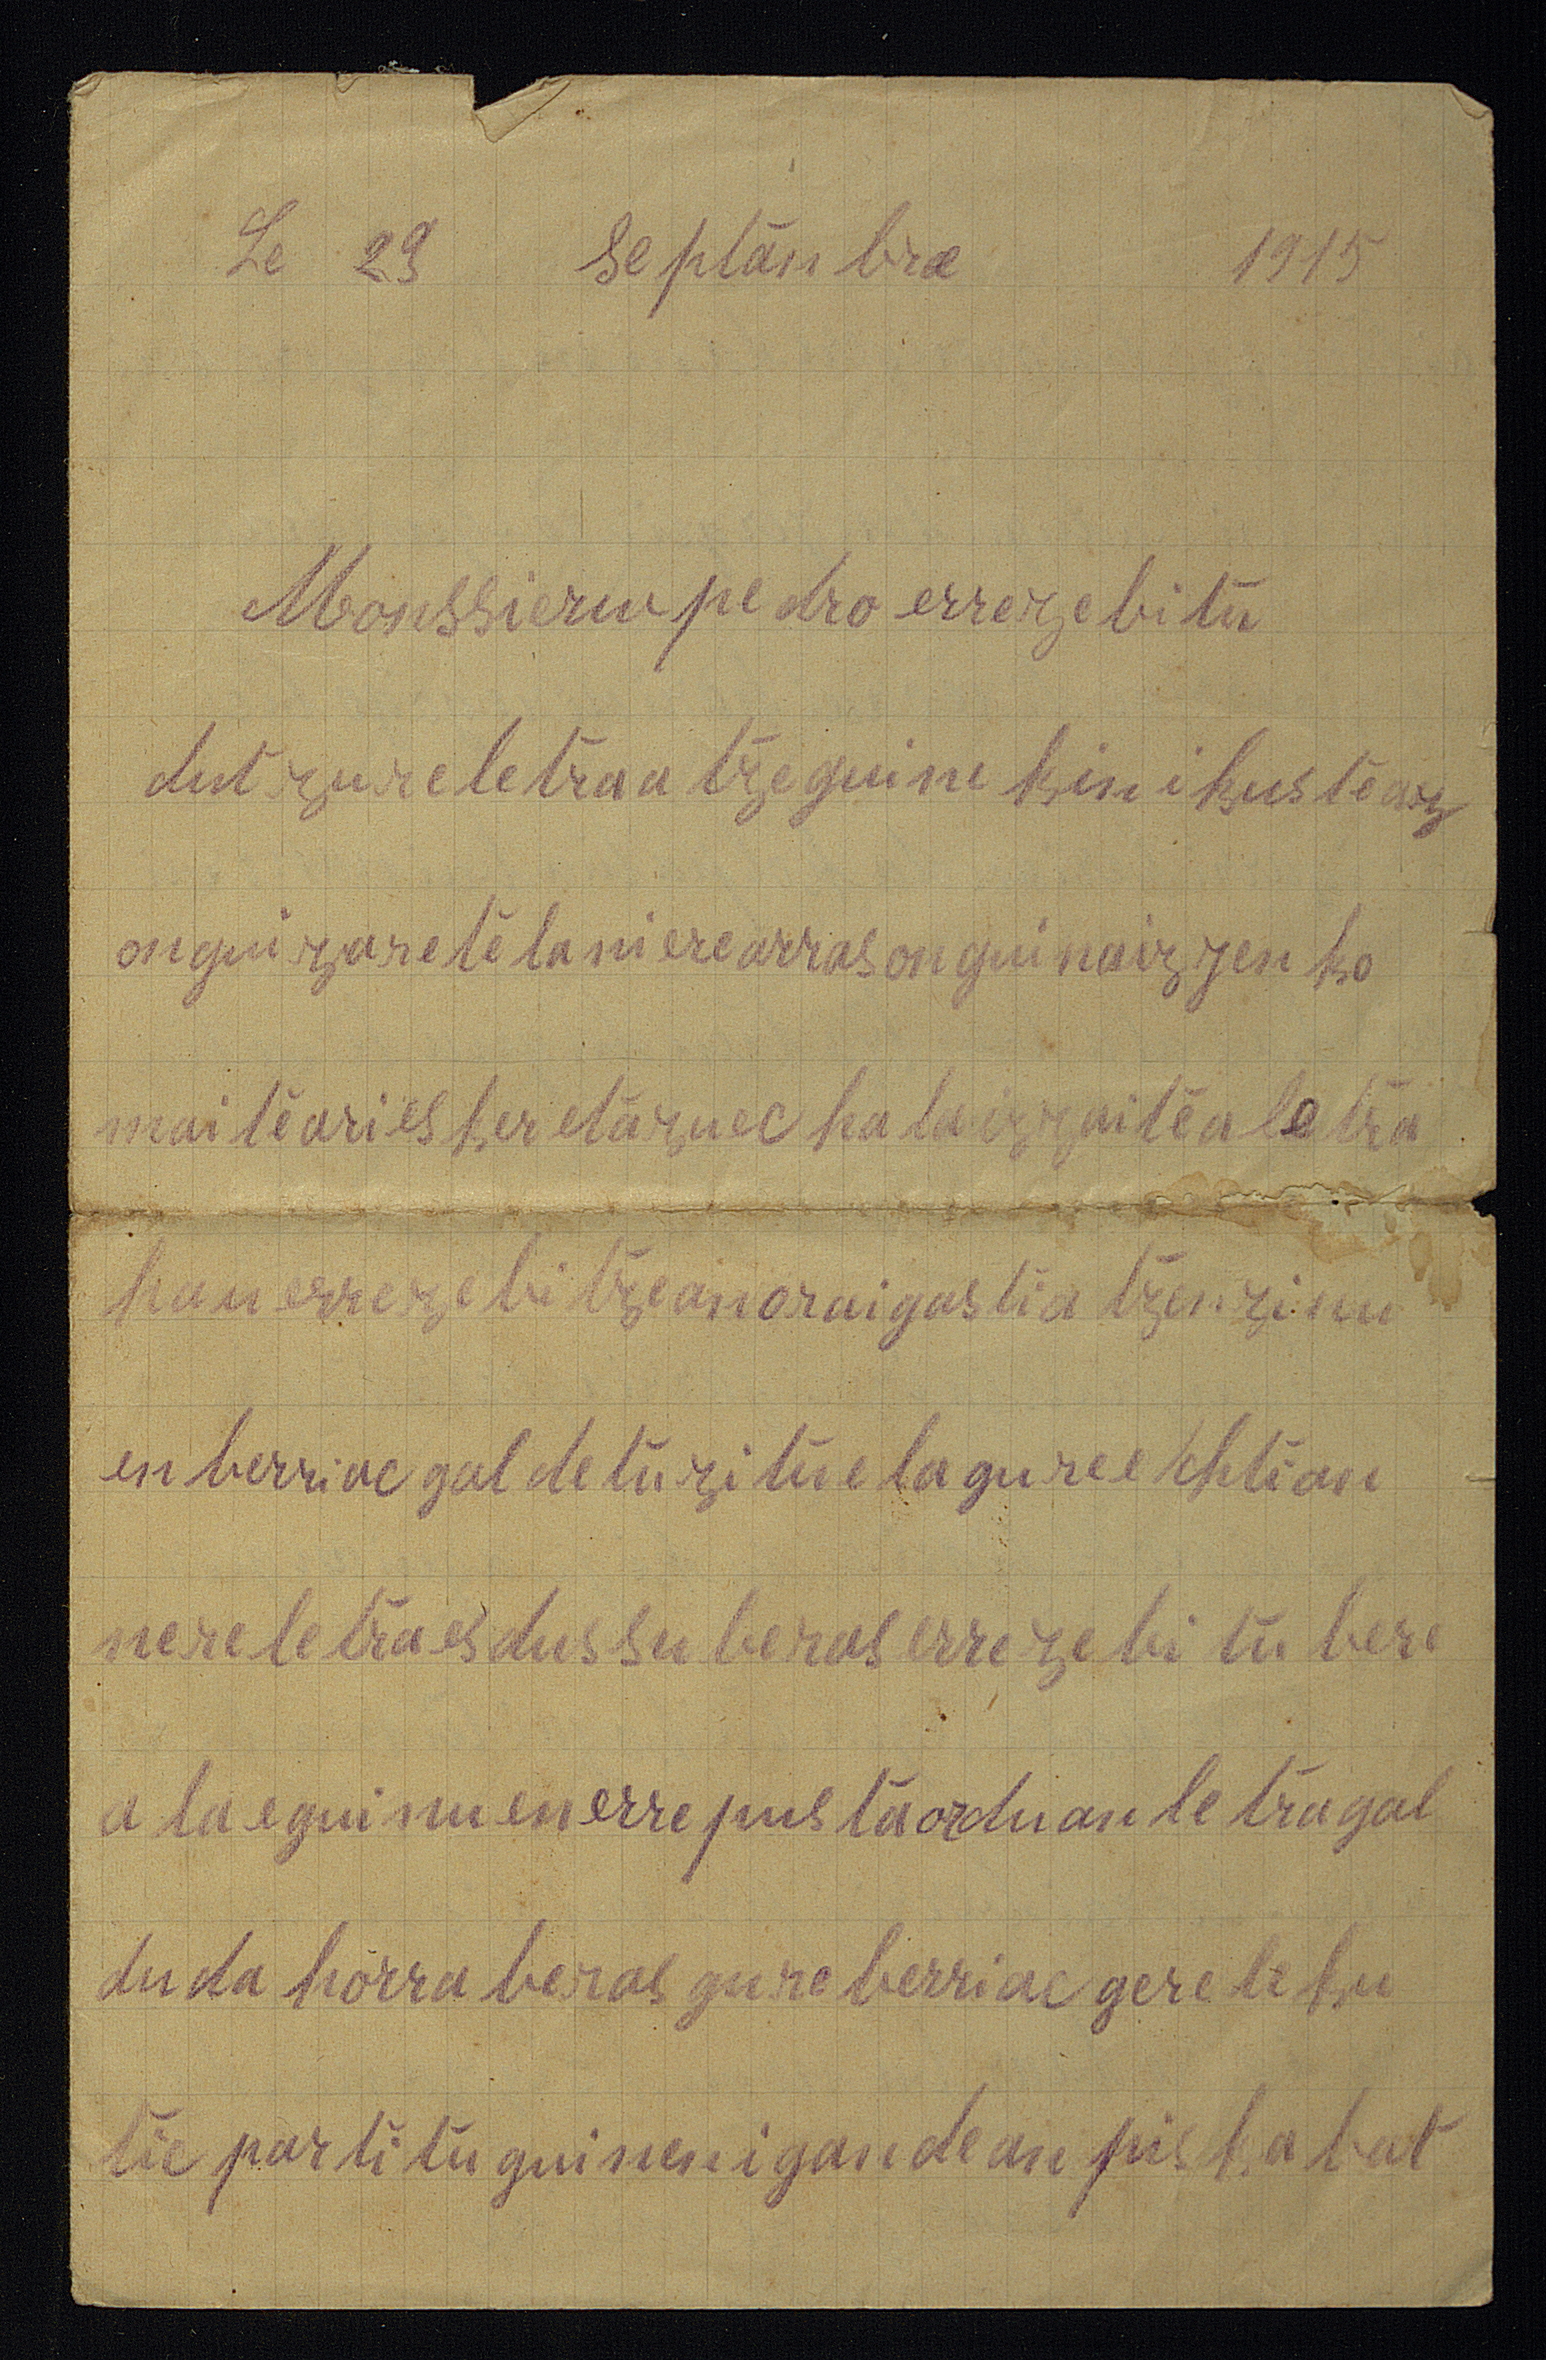 Le 29 Septanbre 1915
Monssieru pedro errezebitu
dut zure letra atzeguinekin ikusteaz
ongui zarete la ni ere arras ongui naizzen ko
maiteari esker eta zuec hala izzaitea letra
hau errezebitzean orai gastiatzen zinu
en berriac galdetu zitue la gure echtian
nere letra es dussu beras errezebitu bere
ala egui nuen errepusta orduan letra gal
du da horra beras gure berriac gere leku
tic partitu guinen igandean piskabat